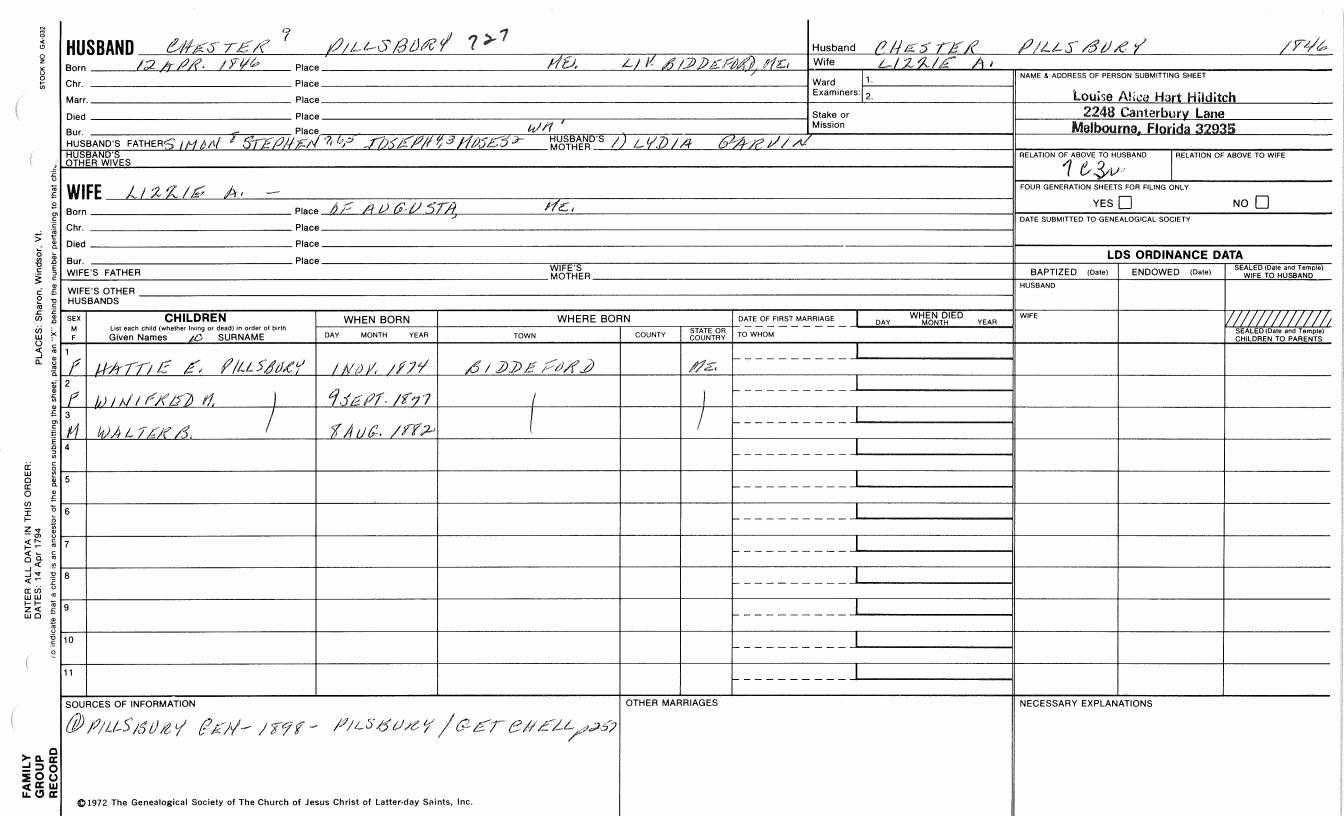 STOCK NO GA-032
HUSBAND CHESTER 9 PILLSBURY 727
Born 12 APR. 1846 Place ME. LIV. BIDDEFORD, ME.
Chr. Place
Marr. Place
Died Place
Bur. Place
HUSBAND'S FATHER SIMON 8 STEPHEN 7,6,5 JOSEPH 4,3 MOSES 2 HUSBAND'S MOTHER 1) LYDIA GARVIN
HUSBAND'S OTHER WIVES
WIFE LIZZIE A. —
Born Place OF AUGUSTA, ME.
Chr. Place
Died Place
Bur. Place
WIFE'S FATHER WIFE'S MOTHER
WIFE'S OTHER HUSBANDS
Husband CHESTER PILLSBURY 1846
Wife LIZZIE A.
Ward Examiners: 1. 2.
Stake or Mission
NAME & ADDRESS OF PERSON SUBMITTING SHEET
Louise Alice Hart Hilditch
2248 Canterbury Lane
Melbourne, Florida 32935
RELATION OF ABOVE TO HUSBAND RELATION OF ABOVE TO WIFE
7C3
FOUR GENERATION SHEETS FOR FILING ONLY
YES NO
DATE SUBMITTED TO GENEALOGICAL SOCIETY
LDS ORDINANCE DATA
BAPTIZED (Date) ENDOWED (Date) SEALED (Date and Temple) WIFE TO HUSBAND
HUSBAND
WIFE
SEALED (Date and Temple) CHILDREN TO PARENTS
SEX M F CHILDREN WHEN BORN WHERE BORN DATE OF FIRST MARRIAGE WHEN DIED
List each child (whether living or dead) in order of birth
Given Names 10 SURNAME DAY MONTH YEAR TOWN COUNTY STATE OR COUNTRY TO WHOM DAY MONTH YEAR
1 F HATTIE E. PILLSBURY 1 NOV. 1874 BIDDEFORD ME.
2 F WINIFRED M. 9 SEPT. 1877
3 M WALTER B. 8 AUG. 1882
4
5
6
7
8
9
10
11
SOURCES OF INFORMATION OTHER MARRIAGES NECESSARY EXPLANATIONS
① PILLSBURY GEN- 1898- PILSBURY/GETCHELL p257
©1972 The Genealogical Society of The Church of Jesus Christ of Latter-day Saints, Inc.
FAMILY GROUP RECORD
ENTER ALL DATA IN THIS ORDER:
DATES: 14 Apr 1794
PLACES: Sharon, Windsor, Vt.
To indicate that a child is an ancestor of the person submitting the sheet, place an "X" behind the number pertaining to that chil